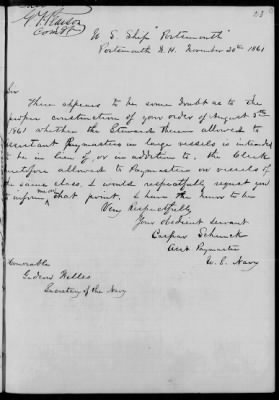 23
G. F. Pearson
Comdt
U. S. Ship "Portsmouth"
Portsmouth N. H. November 20th 1861
Sir
There appears to be some doubt as to the
proper construction of your order of August 5th
1861 whether the Steward therein allowed to
Assistant Paymasters in large vessels is intended
to be in lieu of, or in addition to, the Clerk
heretofore allowed to Paymasters on vessels of
the same class. I would respectfully request you
to inform me on that point. I have the honor to be
Very Respectfully
Your obedient servant
Caspar Schenck
Asst Paymaster
U. S. Navy
Honorable
Gideon Welles
Secretary of the Navy